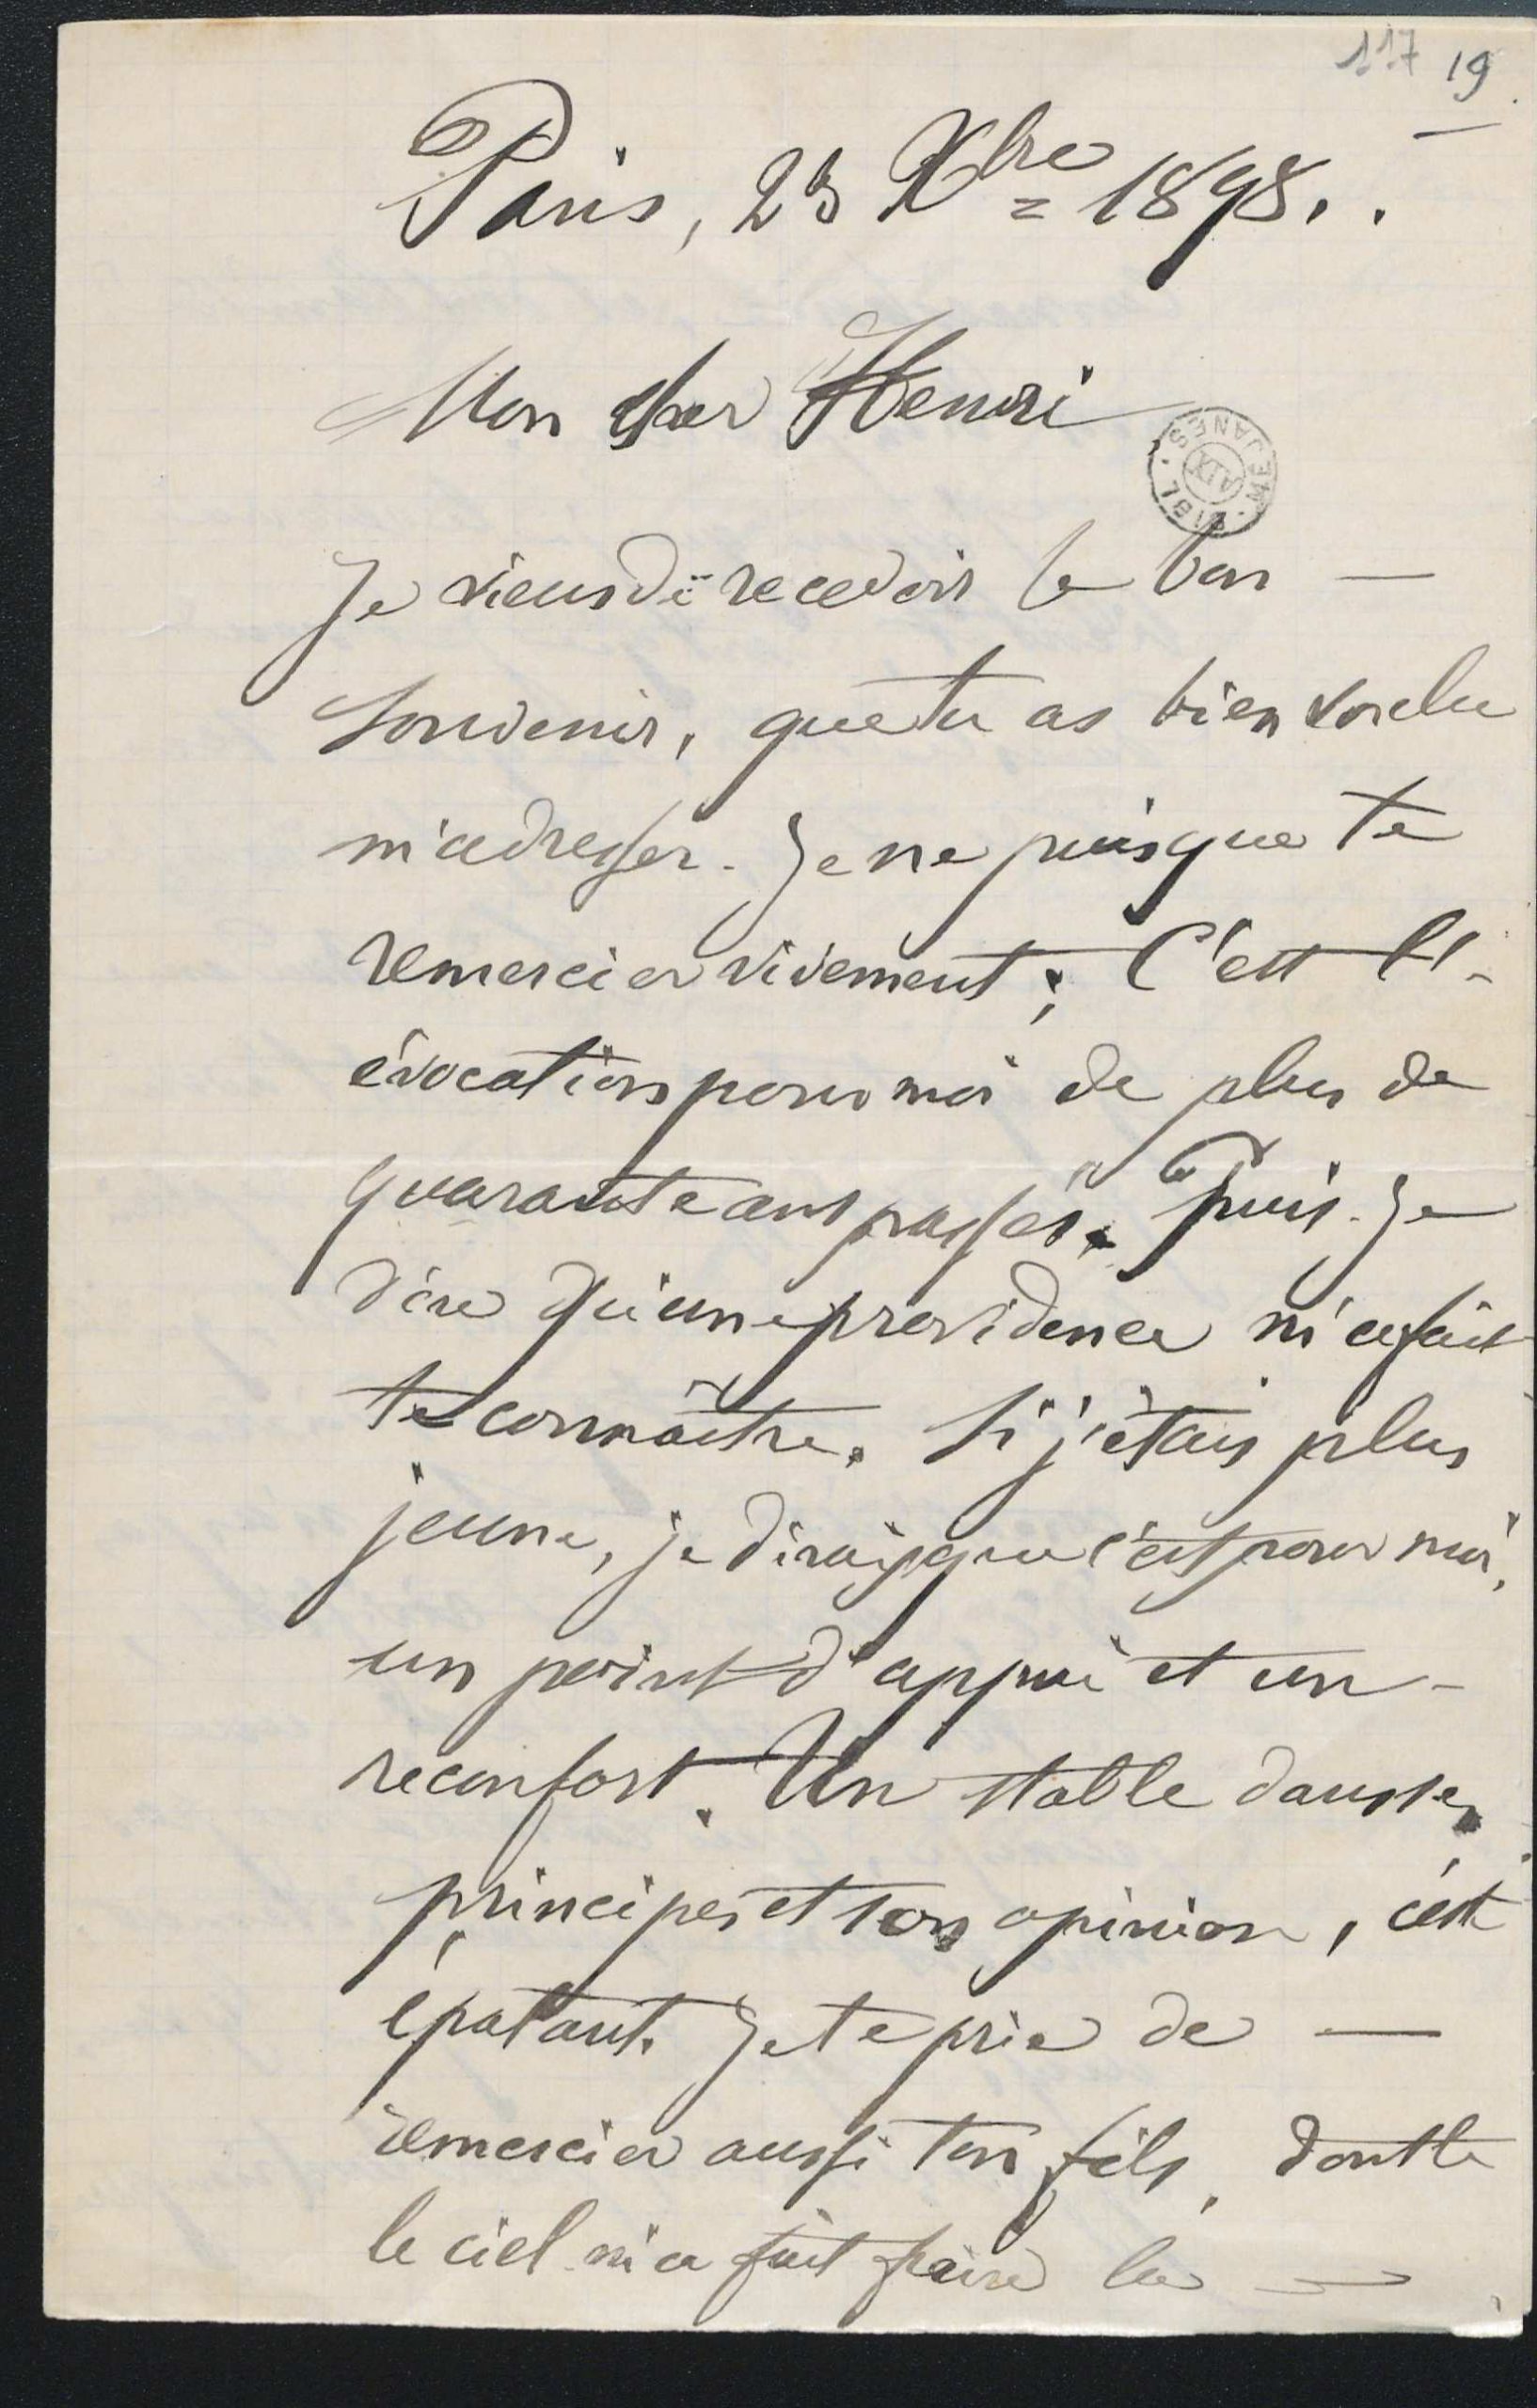 117 19
Paris, 23 Xbre 1898.
Mon cher Henri
BIBL. MEJANES AIX
Je viens de recevoir le bon —
souvenir, que tu as bien voulu
m'adresser. Je ne puis que te
remercier vivement; C'est l'-
évocation pour moi de plus de
quarante ans passés. Puis-je
dire qu'une providence m'a fait
te connaître. Si j'étais plus
jeune, je dirais que c'est pour moi,
un point d'appui et un -
reconfort. Un stable dans ses
principes et son opinion, c'est
épatant. Je te prie de —
remercier aussi ton fils, dont le
le ciel m'a fait faire la —